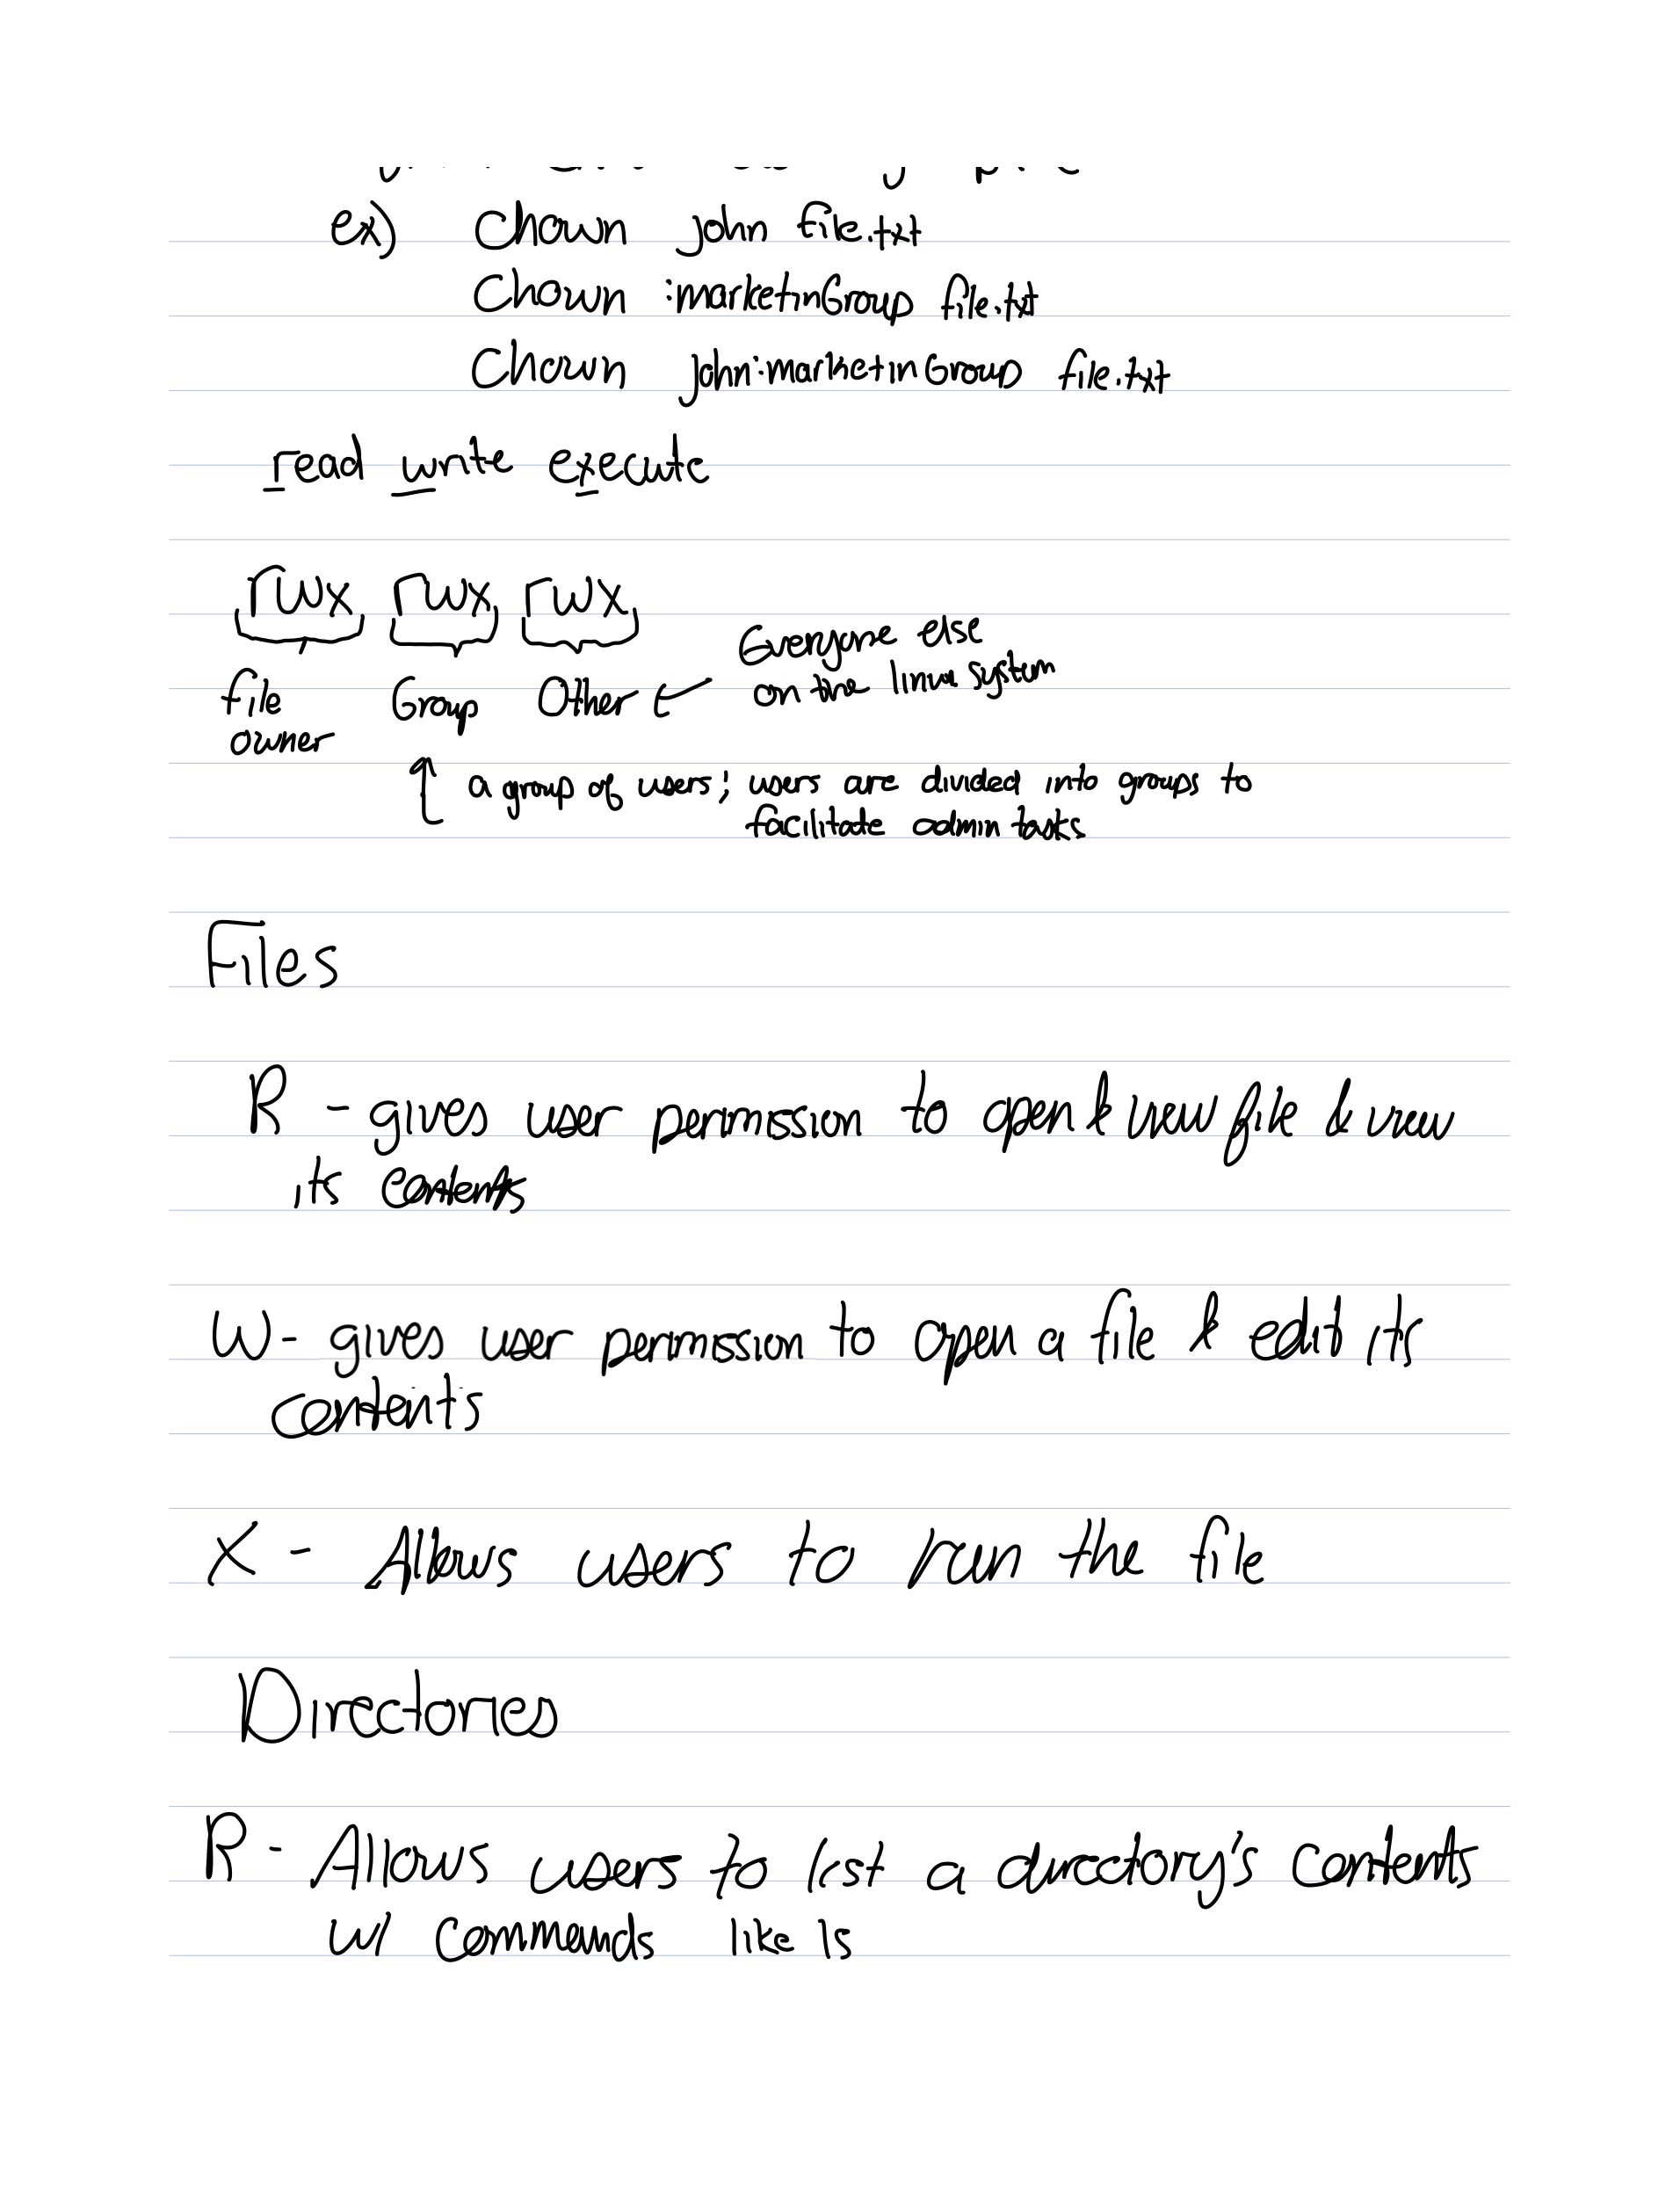 ex) chown john file.txt
chown :marketinGroup file.txt
chown john:marketinGroup file.txt
read write execute
rwx rwx rwx
Everyone else
on the linux system
file Group Other
owner
a group of users; users are divided into groups to
facilitate admin tasks
Files
R - gives user permission to open & view file & view
its contents
W - gives user permission to open a file & edit its
contents
X - Allows users to run the file
Directories
R - Allows users to list a directory's contents
w/ commands like ls